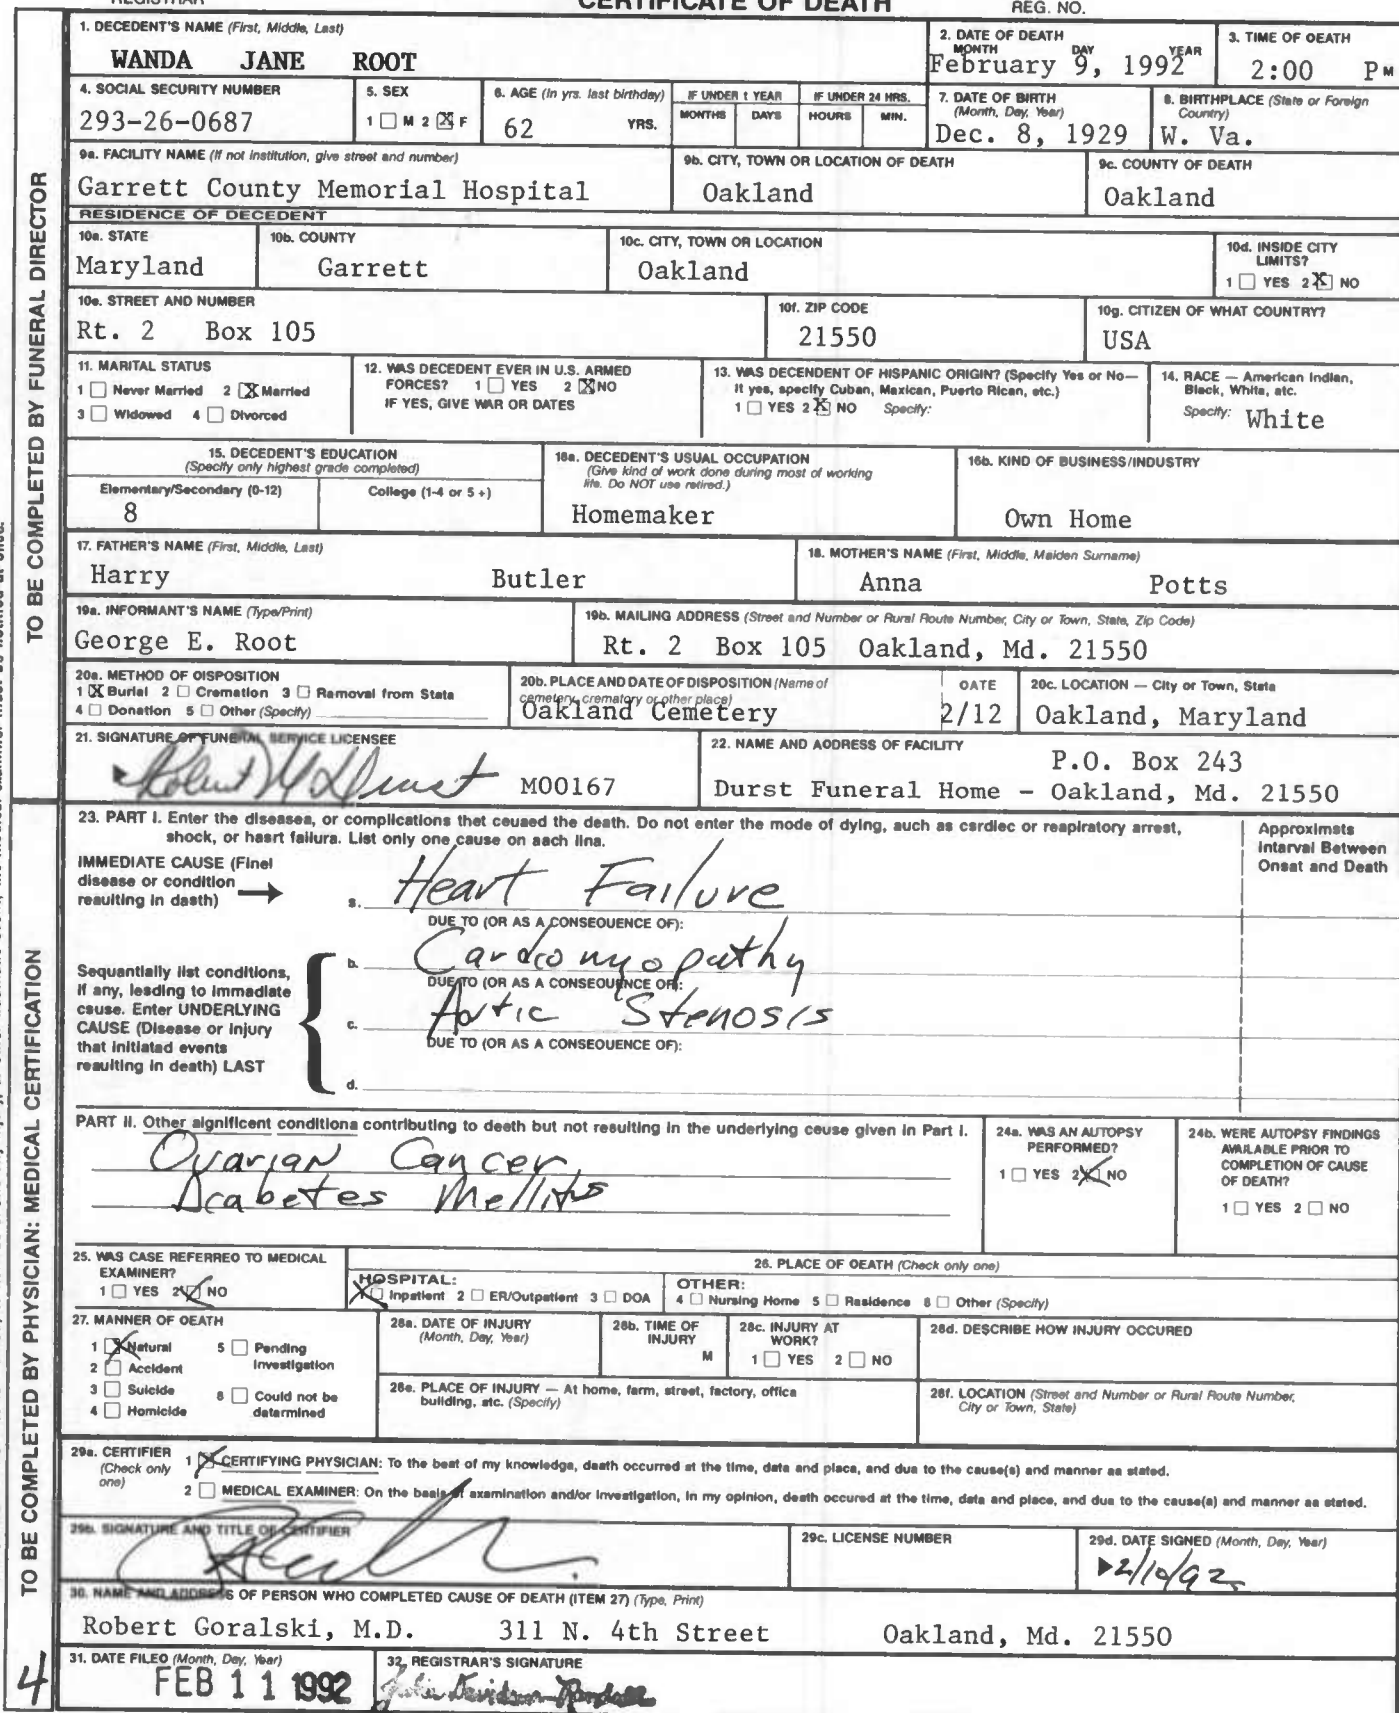 REGISTRAR
CERTIFICATE OF DEATH
REG. NO.
TO BE COMPLETED BY FUNERAL DIRECTOR
1. DECEDENT'S NAME (First, Middle, Last)
WANDA JANE ROOT
2. DATE OF DEATH
MONTH DAY YEAR
February 9, 1992
3. TIME OF DEATH
2:00 P M
4. SOCIAL SECURITY NUMBER
293-26-0687
5. SEX
1 ☐ M 2 ☒ F
6. AGE (In yrs. last birthday)
62 YRS.
IF UNDER 1 YEAR
MONTHS DAYS
IF UNDER 24 HRS.
HOURS MIN.
7. DATE OF BIRTH
(Month, Day, Year)
Dec. 8, 1929
8. BIRTHPLACE (State or Foreign
Country)
W. Va.
9a. FACILITY NAME (If not institution, give street and number)
Garrett County Memorial Hospital
9b. CITY, TOWN OR LOCATION OF DEATH
Oakland
9c. COUNTY OF DEATH
Oakland
RESIDENCE OF DECEDENT
10a. STATE
Maryland
10b. COUNTY
Garrett
10c. CITY, TOWN OR LOCATION
Oakland
10d. INSIDE CITY
LIMITS?
1 ☐ YES 2 ☒ NO
10e. STREET AND NUMBER
Rt. 2 Box 105
10f. ZIP CODE
21550
10g. CITIZEN OF WHAT COUNTRY?
USA
11. MARITAL STATUS
1 ☐ Never Married 2 ☒ Married
3 ☐ Widowed 4 ☐ Divorced
12. WAS DECEDENT EVER IN U.S. ARMED
FORCES? 1 ☐ YES 2 ☒ NO
IF YES, GIVE WAR OR DATES
13. WAS DECENDENT OF HISPANIC ORIGIN? (Specify Yes or No—
It yes, specify Cuban, Maxican, Puerto Rican, etc.)
1 ☐ YES 2 ☒ NO Specify:
14. RACE — American Indian,
Black, White, atc.
Specify: White
15. DECEDENT'S EDUCATION
(Specify only highest grade completed)
Elementary/Secondary (0-12)
8
College (1-4 or 5 +)
16a. DECEDENT'S USUAL OCCUPATION
(Give kind of work done during most of working
life. Do NOT use retired.)
Homemaker
16b. KIND OF BUSINESS/INDUSTRY
Own Home
17. FATHER'S NAME (First, Middle, Last)
Harry Butler
18. MOTHER'S NAME (First, Middle, Maiden Surname)
Anna Potts
19a. INFORMANT'S NAME (Type/Print)
George E. Root
19b. MAILING ADDRESS (Street and Number or Rural Route Number, City or Town, State, Zip Code)
Rt. 2 Box 105 Oakland, Md. 21550
20a. METHOD OF DISPOSITION
1 ☒ Burial 2 ☐ Cremation 3 ☐ Ramoval from Stata
4 ☐ Donation 5 ☐ Other (Specify)
20b. PLACE AND DATE OF DISPOSITION (Name of
cemetery, crematory or other place)
Oakland Cemetery
DATE
2/12
20c. LOCATION — City or Town, Stata
Oakland, Maryland
21. SIGNATURE OF FUNERAL SERVICE LICENSEE
Robert M Durst M00167
22. NAME AND ADDRESS OF FACILITY
P.O. Box 243
Durst Funeral Home - Oakland, Md. 21550
TO BE COMPLETED BY PHYSICIAN: MEDICAL CERTIFICATION
23. PART I. Enter the diseases, or complications thet ceuaed the death. Do not enter the mode of dying, auch as cardiec or reapiratory arrest,
shock, or haart failura. List only one cause on aach lina.
Approximats
Intarval Between
Onsat and Death
IMMEDIATE CAUSE (Finel
disease or condition
reaulting in daath)
a. Heart Failure
DUE TO (OR AS A CONSEQUENCE OF):
Sequantially list conditions,
If any, leading to Immadiate
cause. Enter UNDERLYING
CAUSE (Disease or Injury
that initiatad events
reaulting in death) LAST
b. Cardiomyopathy
DUE TO (OR AS A CONSEQUENCE OF):
c. Aortic Stenosis
DUE TO (OR AS A CONSEQUENCE OF):
d.
PART II. Other aignificent conditiona contributing to deeth but not resulting in the underlying ceuse given in Part I.
Ovarian Cancer,
Diabetes Mellitus
24a. WAS AN AUTOPSY
PERFORMED?
1 ☐ YES 2 ☒ NO
24b. WERE AUTOPSY FINDINGS
AVAILABLE PRIOR TO
COMPLETION OF CAUSE
OF DEATH?
1 ☐ YES 2 ☐ NO
25. WAS CASE REFERRED TO MEDICAL
EXAMINER?
1 ☐ YES 2 ☒ NO
26. PLACE OF DEATH (Check only one)
HOSPITAL:
☒ Inpatient 2 ☐ ER/Outpatient 3 ☐ DOA
OTHER:
4 ☐ Nursing Home 5 ☐ Rasidence 6 ☐ Other (Specify)
27. MANNER OF DEATH
1 ☒ Natural 5 ☐ Pending
2 ☐ Accident Investigation
3 ☐ Suicide 6 ☐ Could not be
4 ☐ Homicide datarmined
28a. DATE OF INJURY
(Month, Day, Year)
28b. TIME OF
INJURY
M
28c. INJURY AT
WORK?
1 ☐ YES 2 ☐ NO
28d. DESCRIBE HOW INJURY OCCURED
28e. PLACE OF INJURY — At home, farm, street, factory, offica
building, atc. (Specify)
28f. LOCATION (Street and Number or Rural Route Number,
City or Town, State)
29a. CERTIFIER
(Check only
one)
1 ☒ CERTIFYING PHYSICIAN: To the beat of my knowledge, daath occurred at the time, data and placa, and dua to the cause(s) and manner aa stated.
2 ☐ MEDICAL EXAMINER: On the basis of axamination and/or Invastigation, in my opinion, death occured at the time, data and place, and dua to the cause(a) and manner aa stated.
29b. SIGNATURE AND TITLE OF CERTIFIER
29c. LICENSE NUMBER
29d. DATE SIGNED (Month, Day, Year)
2/10/92
30. NAME AND ADDRESS OF PERSON WHO COMPLETED CAUSE OF DEATH (ITEM 27) (Type, Print)
Robert Goralski, M.D. 311 N. 4th Street Oakland, Md. 21550
4
31. DATE FILED (Month, Day, Year)
FEB 11 1992
32. REGISTRAR'S SIGNATURE
Julia Davidson-Randall